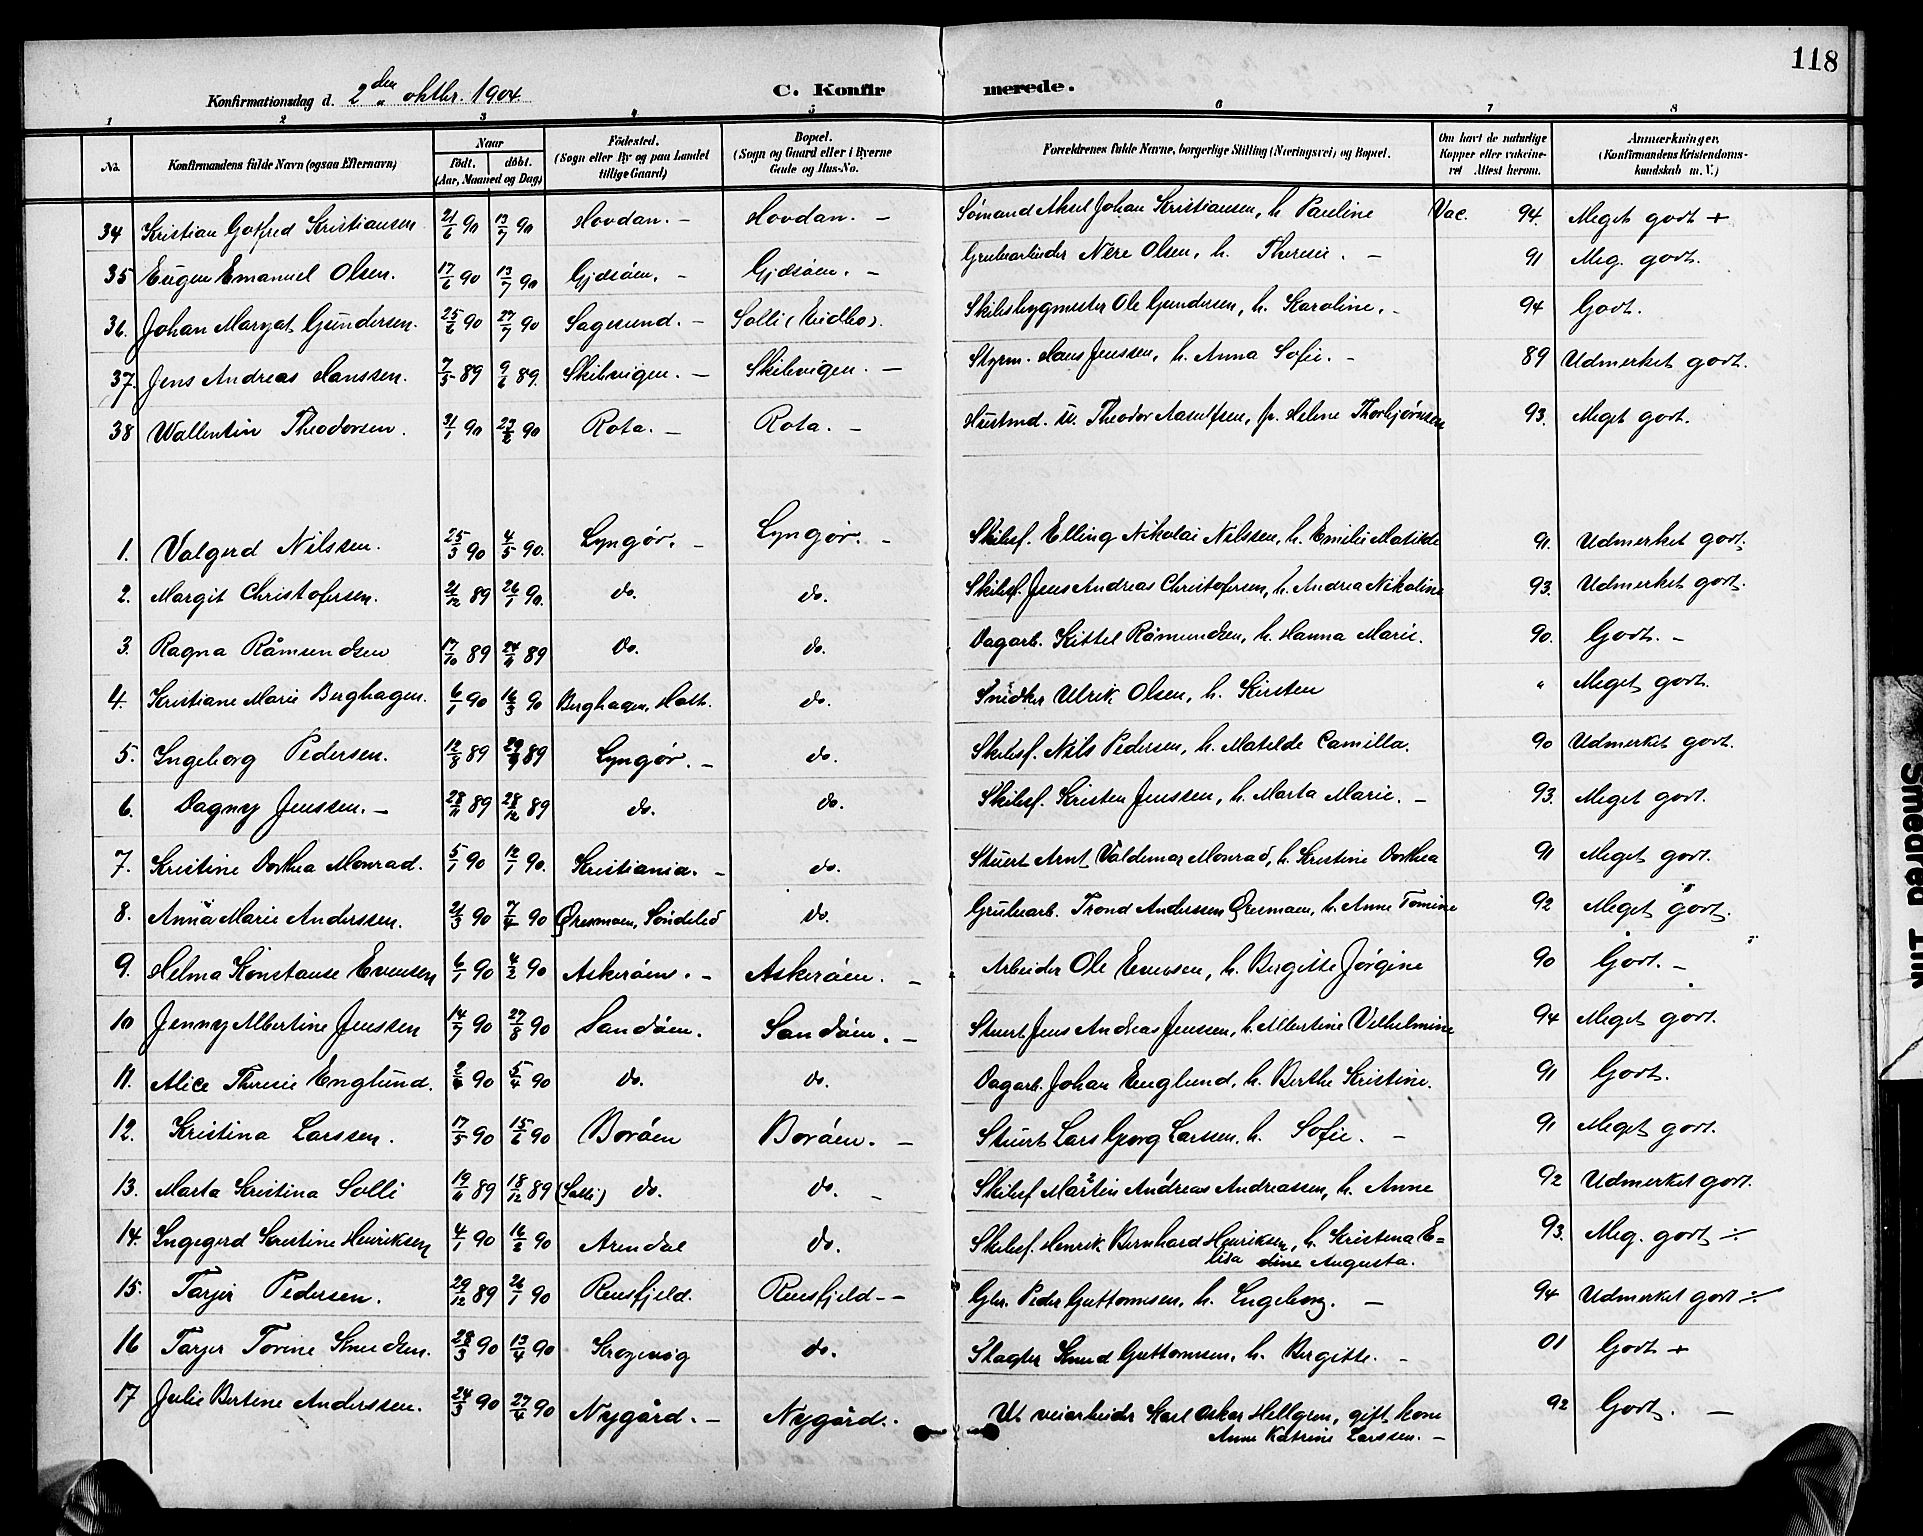 118
Konfirmationsdag d. 2 den oktbr. 1904 C. Konfirmerede.
1 2 3 4 5 6 7 8
No. Konfirmandens fulde Navn (ogsaa Efternavn) Naar födt. döbt. (Aar, Maaned og Dag) Födested. (Sogn eller By og paa Landet tillige Gaard) Bopæl. (Sogn og Gaard eller i Byerne Gade og Hus-No. Forældrenes fulde Navne, borgerlige Stilling (Næringsvei) og Bopæl. Om havt de naturlige Kopper eller vaccineret Attest herom. Anmærkninger, (Konfirmandens Kristendomskundskab m. V.)
34 Kristian Gotfred Kristiansen 21/6 90 13/7 90 Hovdan. - Hovdan. - Sømand Aksel Johan Kristiansen, h. Pauline Vac. 94. Meget godt +
35 Eugen Emanuel Olsen. 17/6 90 13/7 90 Gjæsøen. - Gjæsøen. - Grubearbeider Nere Olsen, h. Theresie. - 91 Meg. godt.
36. Johan Margat Gundersen. 25/6 90 27/7 90 Sagesund. - Solli Skibsbygmester Ole Gundersen, h. Karoline. - 94 Godt.
37. Jens Andreas Hanssen. 7/5 89 9/6 89. Skibsvigen. - Skibsvigen. - Styrm. Hans Jenssen, h. Anna Sofie. - 89 Udmerket godt.
38 Wallentin Theodorsen. 31/1 90 90 Rota. - Rota. - Hustmd. U. Theodor Aasulfsen, Helene Thorbjørnsen 93. Meget godt.
1. Valgerd Nilssen. 25/3 90 4/5 90. Lyngør. - Lyngør. - Skibsf. Elling Nikolai Nilssen, h. Emilie Matilde 91. Udmerket godt.
2. Margit Christofersen. 21/12 89 26/1 90. do. do. Skibsf. Jens Andreas Christofersen, h. Andrea Nikoline 93. Udmerket godt.
3. Ragna Råmundsen 17/10 89 24/11 89 do. do. Dagarb. Kittel Råmundsen, h. Hanna Marie. 90. Godt. -
4. Kristiane Marie Berghagen. 6/1 90 16/3 90 Berghagen, Holt. do. Snidker Ulrik Olsen, h. Kirsten " Meget godt.
5. Ingeborg Pedersen. 12/8 89 29/9 89 Lyngør. - do. Skibsf. Nils Pedersen, h. Matelde Camilla. 90 Udmerket godt.
6. Dagny Jenssen. - 28/11 89 28/12 89 do. do. Skibsf. Kristen Jenssen, h. Marta Marie. - 93. Meget godt.
7. Kristine Dorthea Monrad. 5/1 90 12/1 90. Kristiania. - do. Stuert Arnt Valdemar Monrad, h. Kristine Dorthea 91 Meget godt.
8. Anna Marie Anderssen. 21/3 90 7/4 90 Øresmoen, Søndeled do. Grubearb. Trond Anderssen Øresmoen, h. Anne Tomine 92 Meget godt.
9. Helma Konstanse Evensen 6/1 90 4/2 90 Askerøen. - Askerøen. - Arbeider Ole Evensen, h. Bergitte Jørgine 90 Godt. -
10 Jenny Albertine Jenssen 14/7 90 27/8 90 Sandøen. Sandøen. - Stuert Jens Andreas Jenssen, h. Albertine Vilhelmine 94 Meget godt.
11. Alice Theresie Englund. 90 5/4 90 do. do. Dagarb. Johan Englund, h. Berthe Kristine. 91 Godt.
12. Kristina Larssen. 17/5 90 15/6 90 Borøen Borøen. - Stuert Lars Georg Larssen, h. Sofie. - 91 Meget godt.
13. Marta Kristina Solli 89 18/12 89 (Solli) do. do. - Skibsf Martin Andreas Andreassen, h. Anne 92 Udmerket godt.
14. Ingegerd Kristine Henriksen 4/1 90 16/2 90 Arendal do. Skibsf. Henrik Bernhard Henriksen, h. Kristina E=
lisa dine Augusta. 93. Meg. godt ÷
15. Tarjer Pedersen. 29/12 89 26/1 90 Reusfjeld. Reusfjeld - - Gbr. Peder Guttormsen, h. Engeborg. - 94 Udmerket godt ÷
16 Tarjer Tovine Knudsen. 28/3 90 13/4 90 Krogevåg do. Slagter Knud Guttormsen, h. Bergitte. - 01 Godt +
17 Julie Bertine Anderssen. 24/3 90 27/4 90 Nygård. - Nygård. Ut veiarbeider Karl Oskar Hellgren, gift kone
Anne Katrine Larssen. - 92 Godt. -